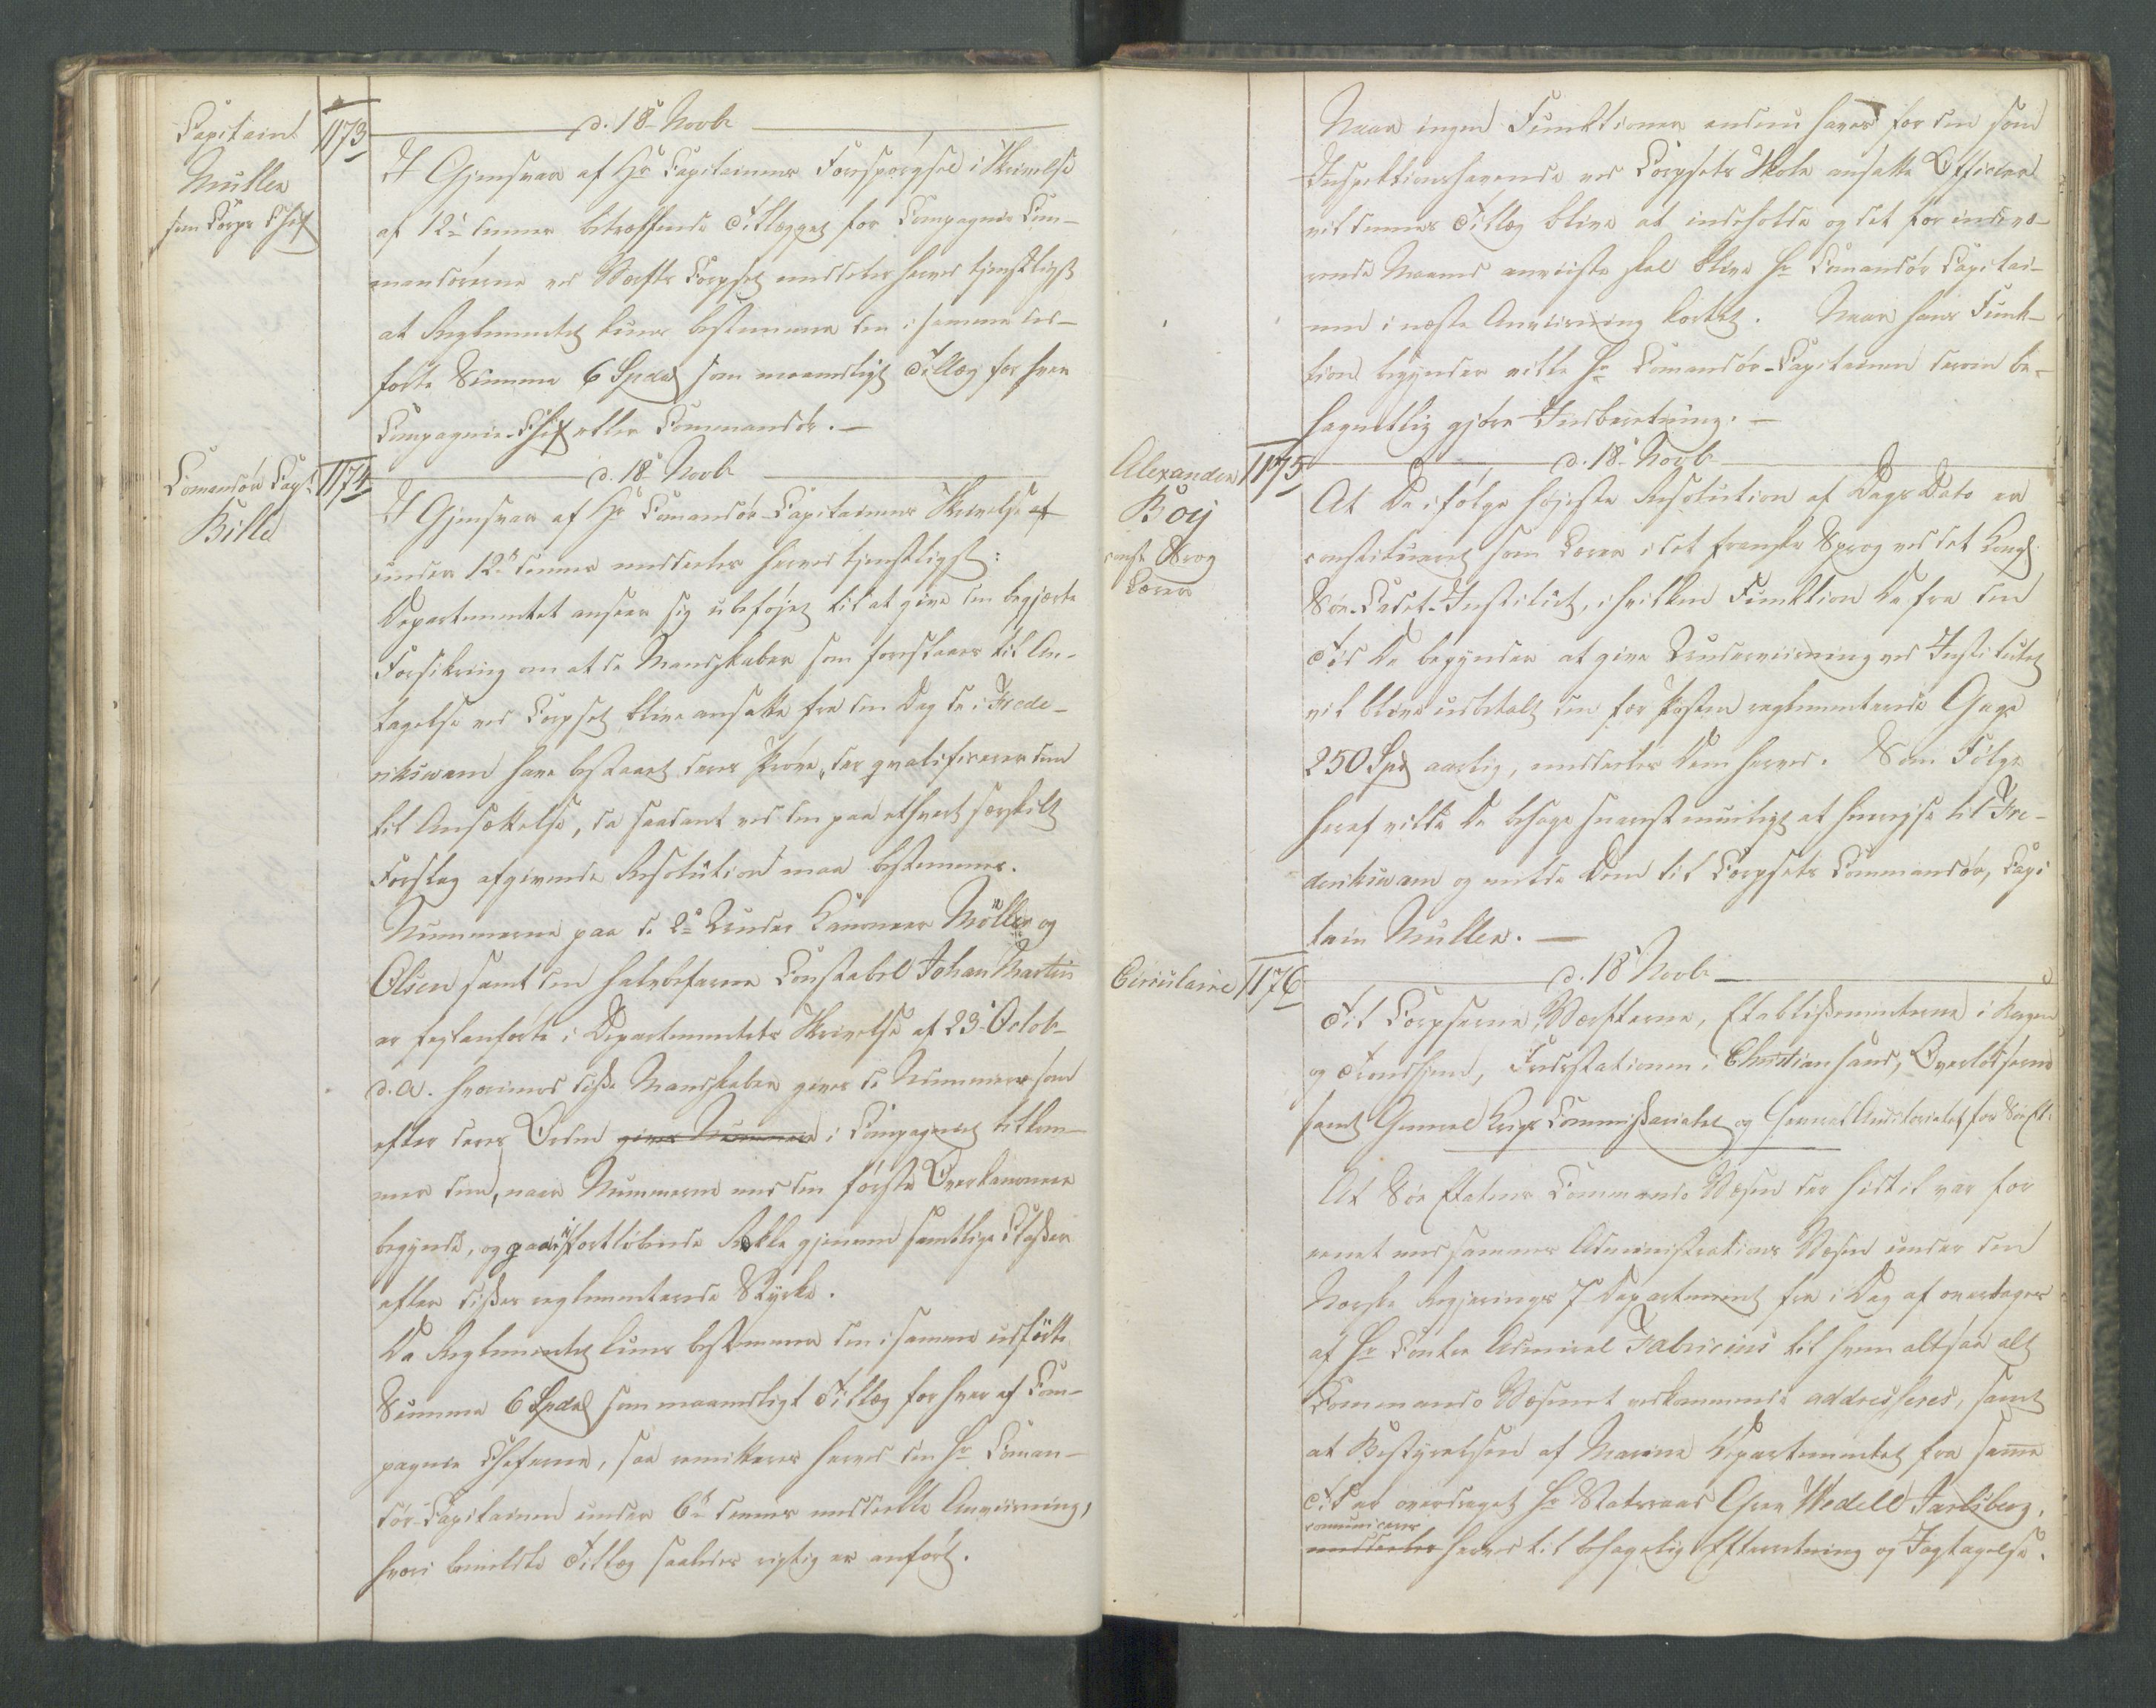 Capitaine
Muller
som Corps Chef
1173
d. 18 Novbr
I Gjensvar af Hr Capitainens Forespørgsel i Skrivelse
af 12te dennes betreffende Tillægget for Compagnie Com-
mandørerne ved Værfts Corpset meddeles herved tjenstligst
at Reglementet kuns bestemmer den i samme ud-
førte Summa 6 Spdal som maanedligt Tillæg for hver
Compagnie-Chef eller Commandør. —
Comandør Capt.
Bille
1174
d. 18 Novbr
I Gjensvar af Hr Comandør-Capitainens Skrivelse af
under 12te dennes meddeles herved tjenstligst:
Departementet anseer sig ubeføjet til at give den begjærte
Forsikring om at de Mandskaber som foreslaaes til An-
tagelse ved Corpset blive ansatte fra den Dag de i Frede-
riksværn have bestaaet deres Prøve, der qvalificerer dem
til Ansættelse, da saadant ved den paa ethvert særskilt
Forslag afgivende Resolution maa bestemmes.
Nummerne paa de 2de Under Canoneer Möller og
Olsen samt den halvbefarne Constabel Johan Martin
er feylanførte i Departementets Skrivelse af 23 Octobr
d. A. hvorimod disse Mandskaber gives de Nummere som
efter deres Orden gives Nummere i Compagniet tilkom-
mer dem, naar Nummerne med den første Overkanoneer
begynde, og gaae i fortløbende Rekke gjennem samtlige Classer
efter disses reglementerede Styrke.
Da Reglementet kuns bestemmer den i samme udførte
Summa 6 Spdal som maanedligt Tillæg for hver af Com-
pagnie Cheferne, saa remitteres herved den Hr Coman-
dør-Capitainen under 6te dennes meddeelte Anviisning,
hvori bemeldte Tillæg saaledes rigtig er anført.
Naar ingen Funktioner endnu haves for den som
Inspektionshavende ved Corpsets Skole ansatte Officier
vil dennes Tillæg blive at indeholde og det for indevæ-
rende Maaned anviiste skal blive Hr Comandør Capitai-
nen i næste Anviisning kortet. Naar hans Funk-
tion begynder vilde Hr Comandør-Capitainen derom be-
hageligt gjøre Indberetning. —
Alexander
Boy
const Sprog
Lærer
1175
d. 18 Novbr
At De ifølge højeste Resolution af Dags Dato er
constitueret som Lærer i det franske Sprog ved det Kongl.
Søe-Cadet-Institut, i hvilken Funktion De fra den
Tid De begynder at give Underviisning ved Institutet
vil blive udbetalt den for Posten reglementerede Gage
250 Spd aarlig, meddeeles Dem herved. Som Følge
heraf vilde De behage snarest mueligt at henrejse til Fre-
deriksværn og melde Dem til Corpsets Commandør, Capi
tain Muller. —
Circulaire
1176
d. 18 Novbr
Til Corpserne, Værfterne, Etablissementerne i Bergen
og Trondhjem, Søe-Stationen i Christiansand, Overlodserne
samt General Krigs Commissariatet og General Auditoriatet for Søe Et.
At Søe Etatens Commando Væsen der hidtil var for
eenet med sammes Administrations Væsen under den
Norske Regjerings 7 Departement fra i Dag af overtages
af Hr Contre Admiral Fabricius til hvem altsaa alt
Commando Væsenet vedkommende addresseres, samt
at Bestyrelsen af Marine Departementet fra samme
Tid er overdraget Hr Statsraad Grev Wedell Jarlsberg,
comuniceres
meddeles herved til behagelig Efterretning og Jagttagelse.